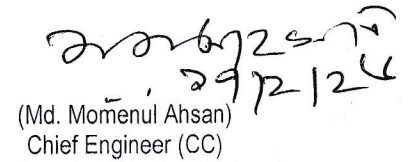 ২৭/১২/২৪
(Md. Momenul Ahsan)
Chief Engineer (CC)